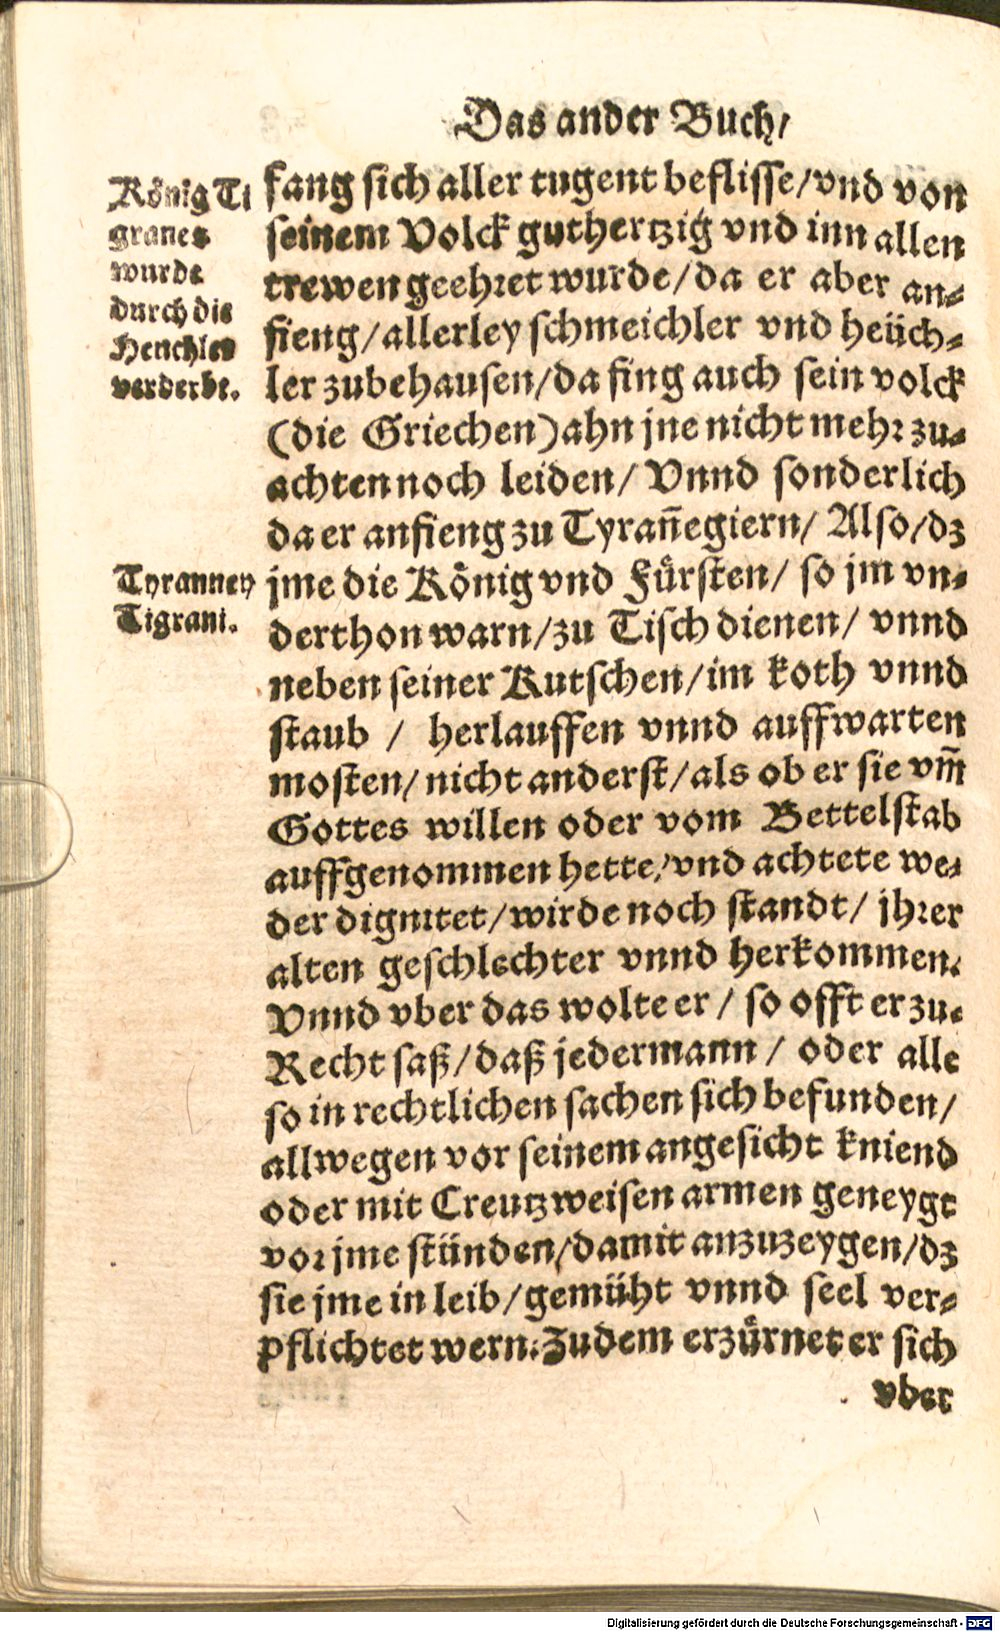 Das ander Buch/
König Ti
granes
wurde
durch die
Heuchler
verderbt.
fang sich aller tugent beflisse/vnd von
seinem Volck guthertzig vnd inn allen
trewen geehret wurde/da er aber an-
fieng/allerley schmeichler vnd heüch-
ler zubehausen/da fing auch sein volck
(die Griechen) ahn jne nicht mehr zu-
achten noch leiden/ Vnnd sonderlich
da er anfieng zu Tyrañegiern/ Also/dz
Tyranney
Tigrani.
jme die König vnd Fürsten/ so jm vn-
derthon warn/zu Tisch dienen/ vnnd
neben seiner Kutschen/im koth vnnd
staub / herlauffen vnnd auffwarten
mosten/nicht anderst/als ob er sie vm̃
Gottes willen oder vom Bettelstab
auffgenommen hette/vnd achtete we-
der dignitet/wirde noch standt/ jhrer
alten geschlechter vnnd herkommen.
Vnnd vber das wolte er / so offt er zu-
Recht saß/daß jedermann / oder alle
so in rechtlichen sachen sich befunden/
allwegen vor seinem angesicht kniend
oder mit Creutzweisen armen geneygt
vor jme stünden/damit anzuzeygen/dz
sie jme in leib/gemüht vnnd seel ver-
pflichtet wern. Zudem erzürnet er sich
vber
Digitalisierung gefördert durch die Deutsche Forschungsgemeinschaft - DFG